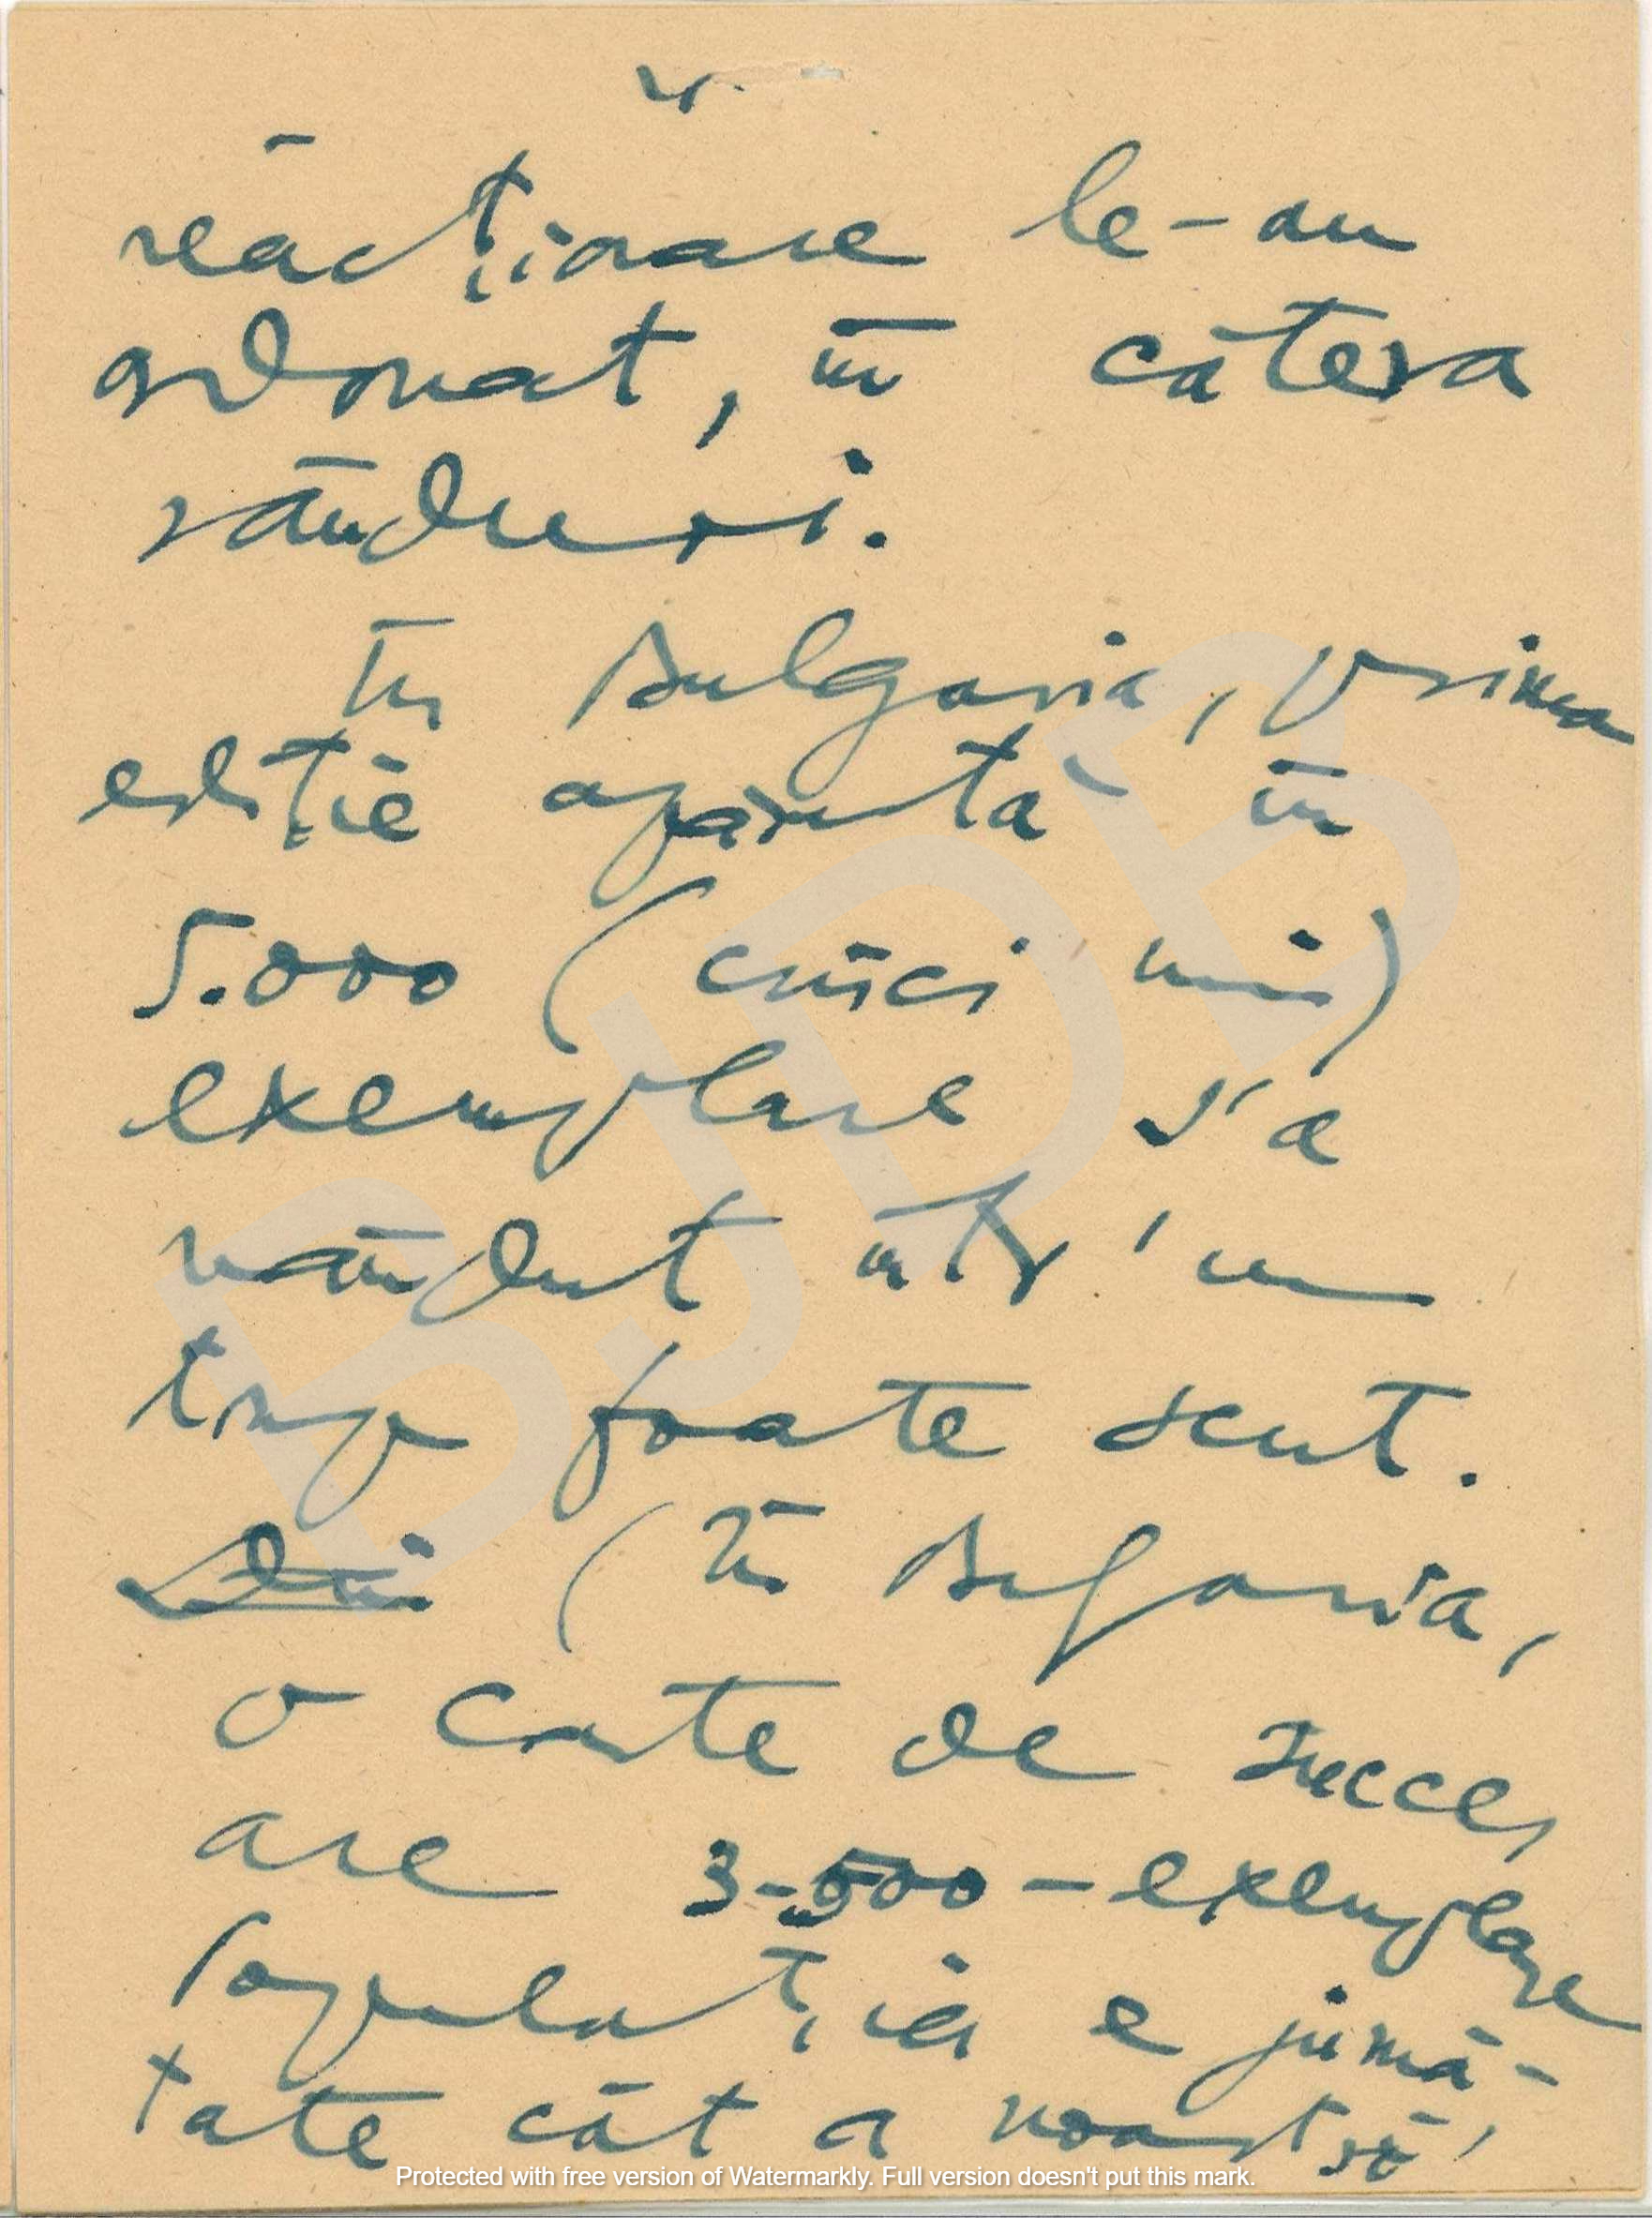 v.
reacționare le-au
ordonat, în câteva
rânduri.
În Bulgaria, prima
ediție apărută în
5.000 (cinci mii)
exemplare s'a
vândut într'un
timp foarte scurt.
(În Bulgaria,
o carte de succes
are 3-500 - exemplare
populația e jumă-
tate cât a noastră,
Protected with free version of Watermarkly. Full version doesn't put this mark.